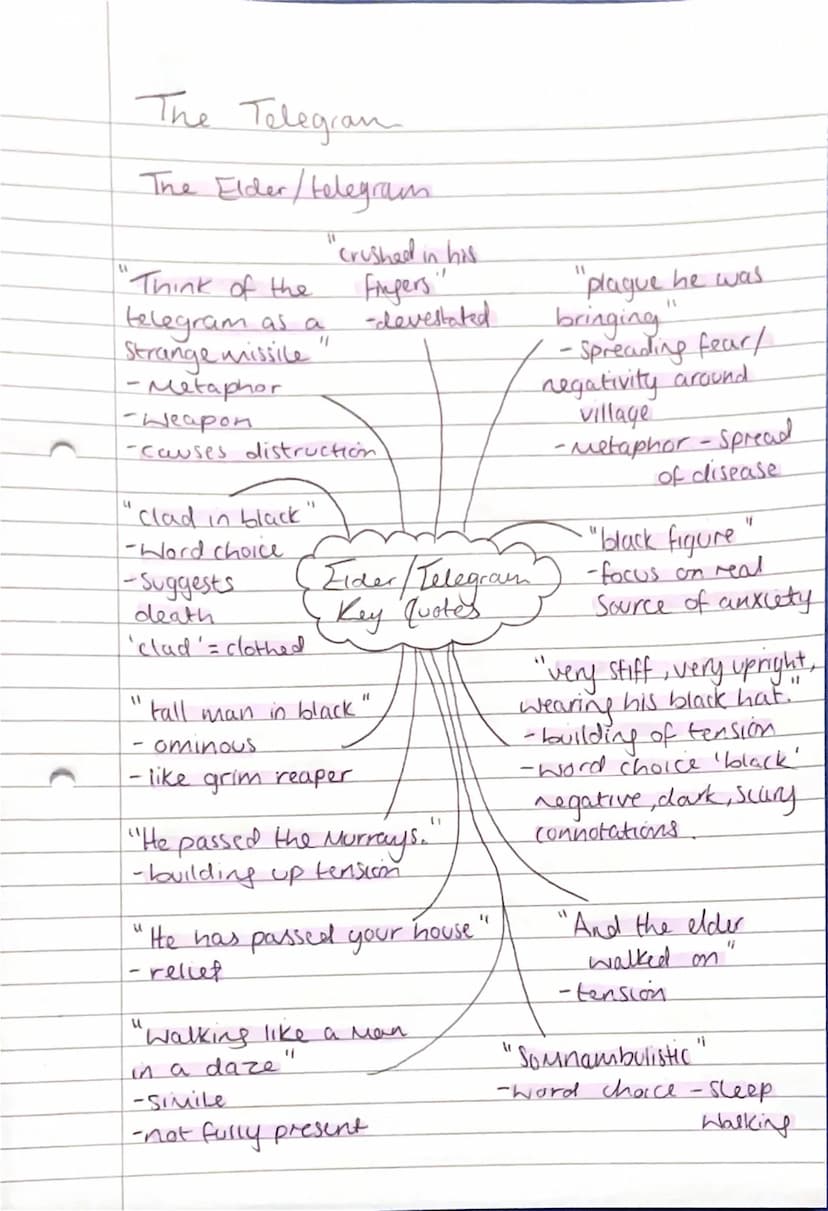 The Telegram
The Elder/telegram
"crushed in his
fingers"
-devestated
"Think of the
telegram as a
strange missile"
- Metaphor
-Weapon
-causes distruction
"plague he was
bringing"
- spreading fear/
negativity around
village
- Metaphor - spread
of disease
"clad in black"
-Word choice
-Suggests
death
'clad' = clothed
Elder/Telegram
Key Quotes
"black figure"
-focus on real
source of anxiety
"tall man in black"
- ominous
- like grim reaper
"very stiff, very upright,
wearing his black hat."
-building of tension
-word choice 'black'
negative, dark, scary
connotations.
"He passed the Murrays."
-building up tension
"He has passed your house"
- relief
"And the elder
walked on"
-tension
"Walking like a man
in a daze"
-simile
-not fully present
"Somnambulistic"
-word choice - sleep
walking